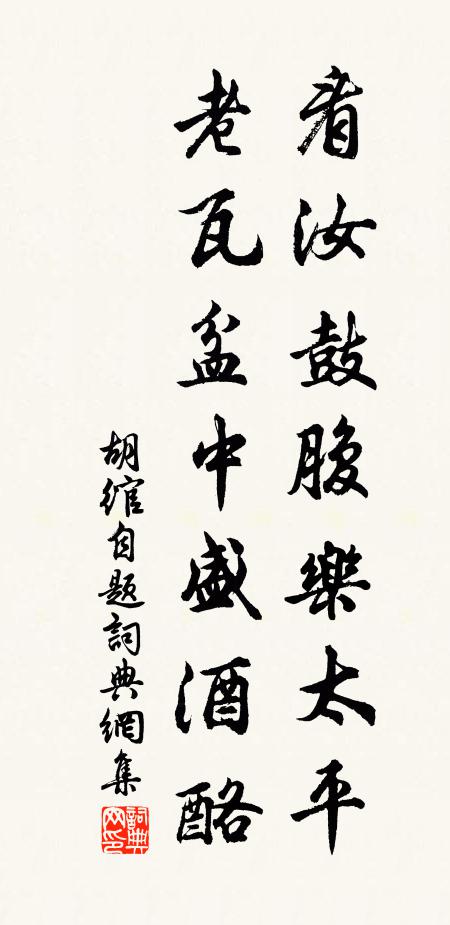 看汝鼓腹樂太平
老瓦盆中盛酒酪
胡綰自題詞典網集
詞典網印